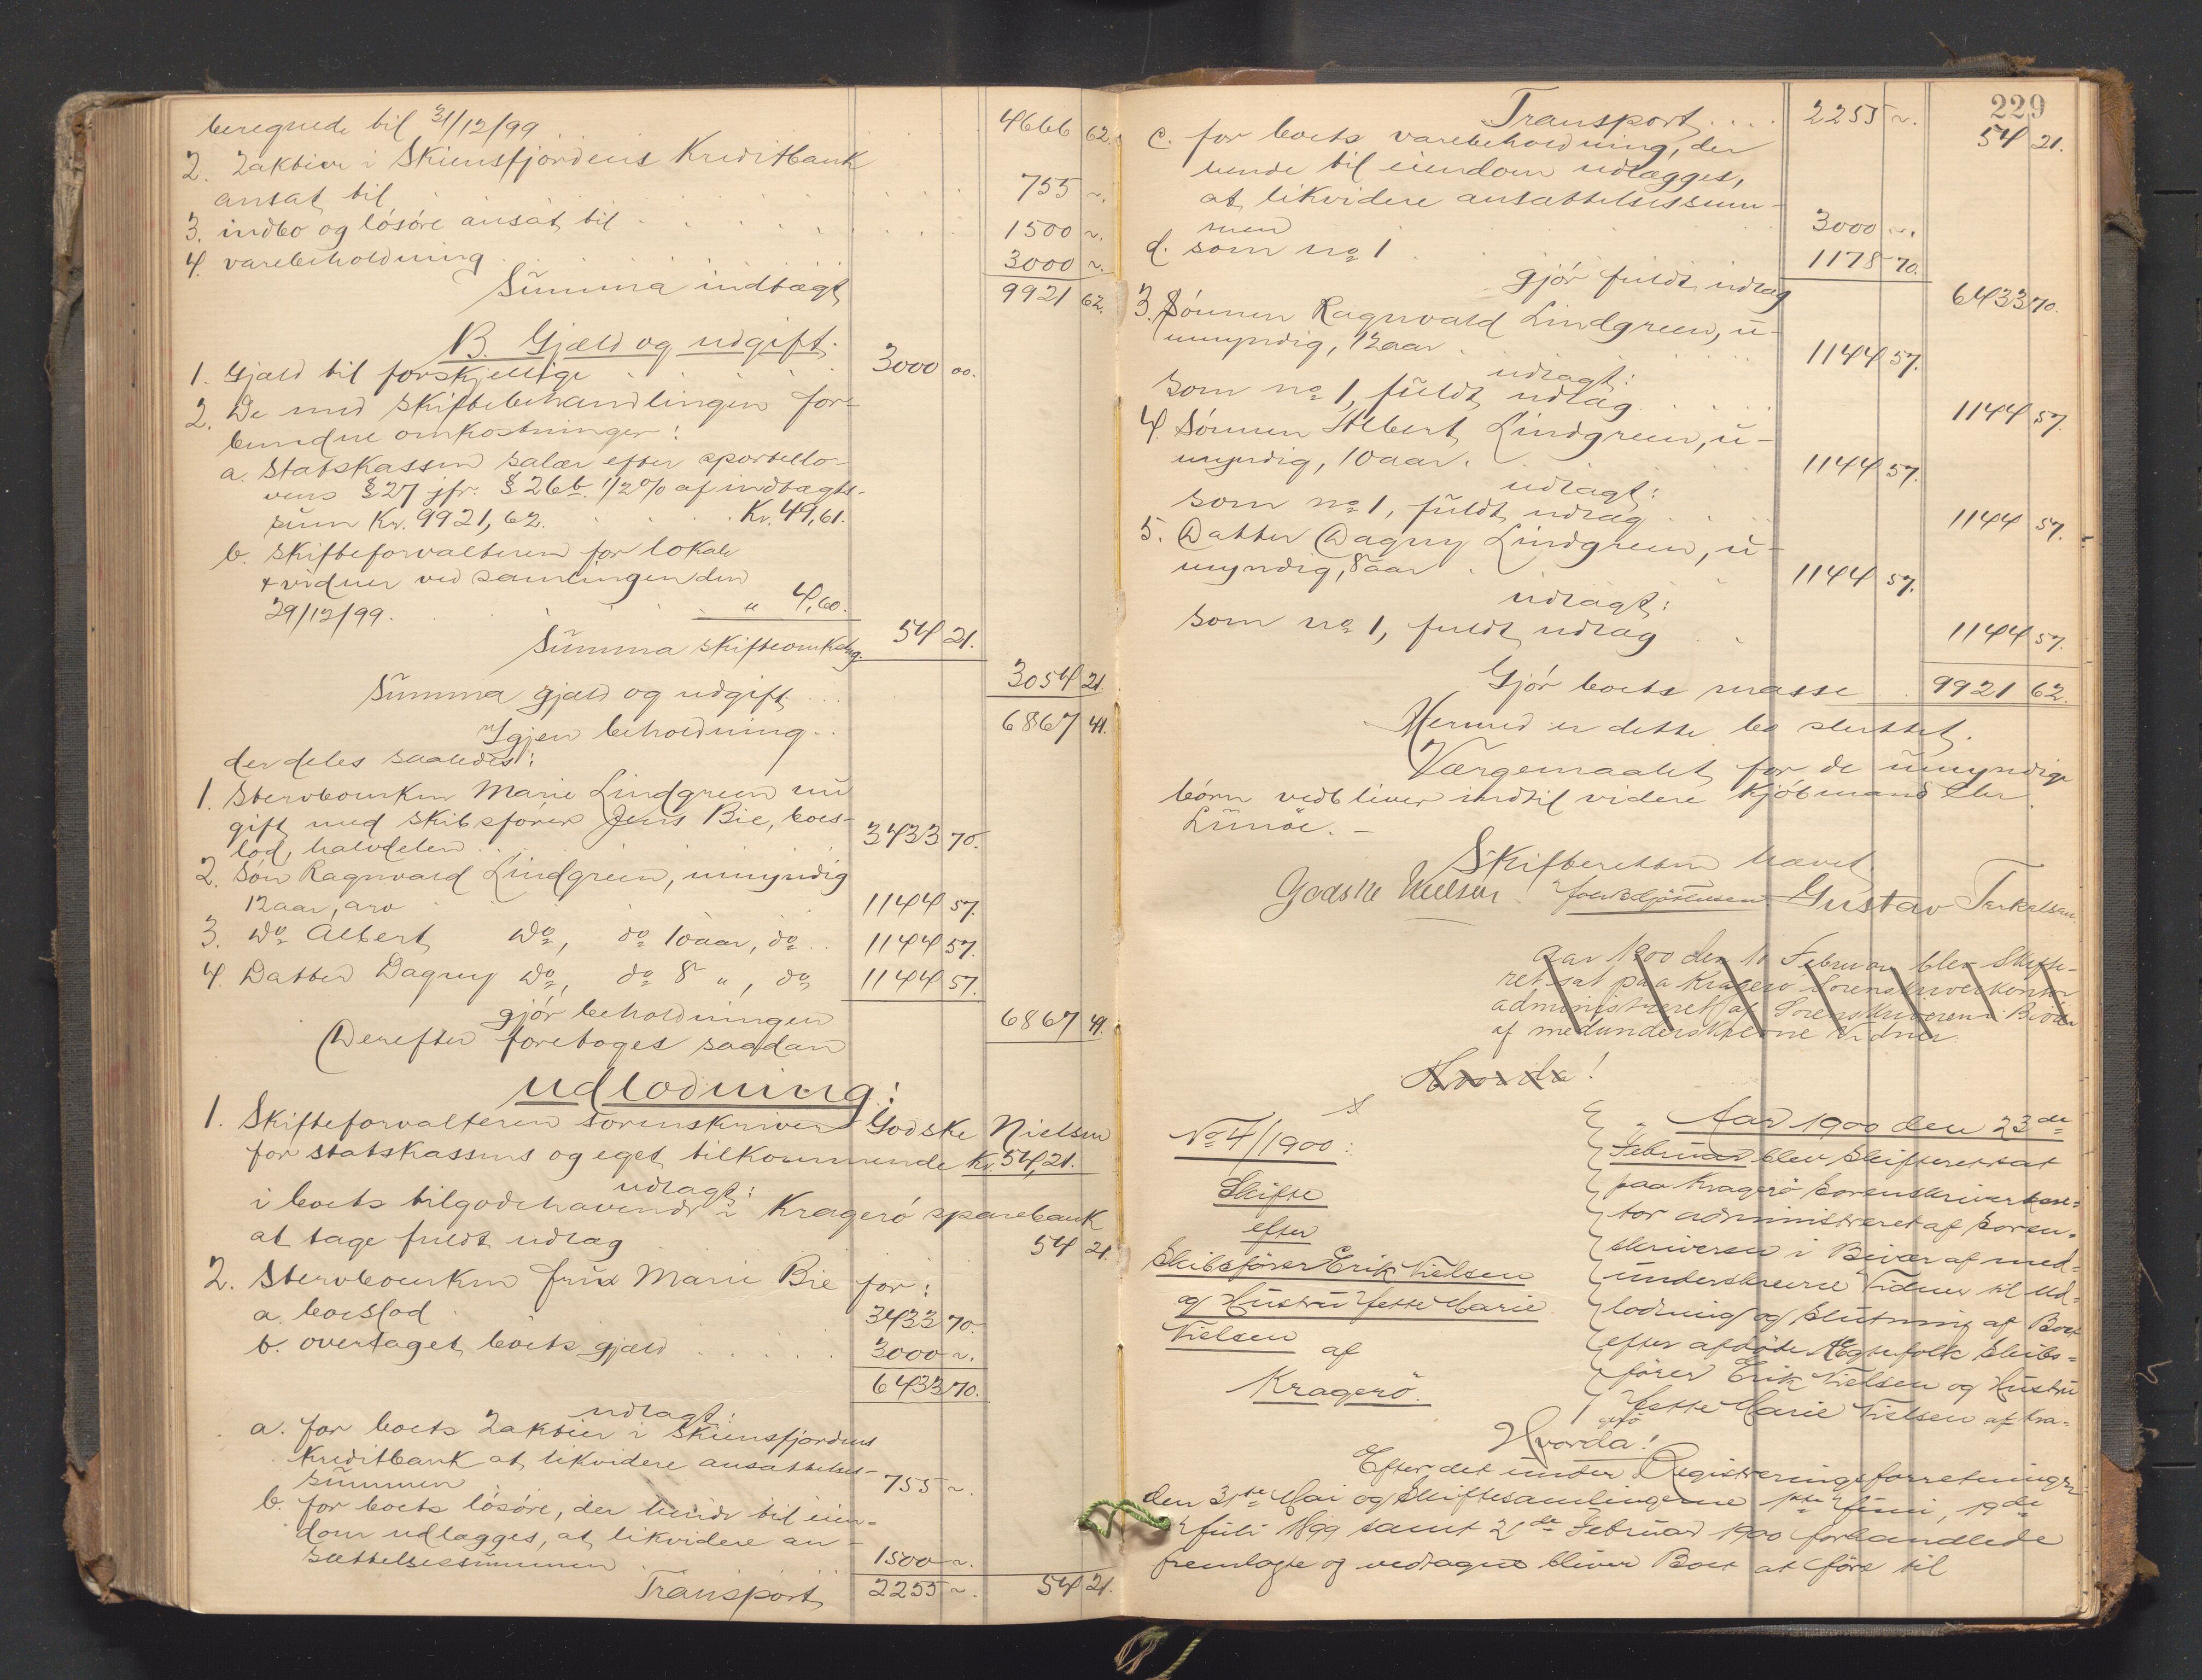 beregnede til 31/12/99 . . . 4666 62.
2. 2 aktier i Skiensfjordens Kreditbank
ansat til . . . . 755 ~.
3. indbo og løsøre ansat til . . . . 1500 ~.
4. varebeholdning . . . . 3000 ~.
Summa indtægt 9921 62.
B. Gjæld og udgift.
1. Gjæld til forskjellige . . . . 3000 00.
2. De med skiftebehandlingen for-
bundne omkostninger:
a. Statskassen salær efter sportello-
vens § 27 jfr. § 26 b. 1/2 % af indtægts-
sum Kr. 9921,62. . . . Kr. 49,61.
b. Skifteforvalteren for lokale
& vidner ved samlingen den
29/12/99. . . . " 4,60.
Summa skifteomkstng. 54 21.
Summa gjæld og udgift . . . 3054 21.
Igjen beholdning . . 6867 41.
der deles saaledes:
1. Stervboenken Marie Lindgreen nu
gift med skibsfører Jens Bie, boes-
lod, halvdelen . . . 3433 70.
2. Søn Ragnvald Lindgreen, umyndig
12 aar, arv . . . 1144 57.
3. do Albert do, do 10 aar, do . . 1144 57.
4. Datter Dagny do, do 8 " , do 1144 57.
gjør beholdningen 6867 41.
Derefter foretoges saadan
udlodning:
1. Skifteforvalteren sorenskriver Godske Nielsen
for statskassens og eget tilkommende Kr. 54,21.
udlagt:
i boets tilgodehavende i Kragerø sparebank
at tage fuldt udlag . . . 54 21.
2. Stervboenken frue Marie Bie for:
a. boeslod . . . 3433 70.
b. overtaget boets gjæld . . . . 3000 ~.
6433 70.
udlagt:
a. for boets 2 aktier i Skiensfjordens
Kreditbank at likvidere ansættelses-
summen . . . 755 ~.
b. for boets løsøre, der hende til eien-
dom udlægges, at likvidere an-
sættelsessummen . . . 1500 ~.
Transport 2255 ~. 54 21.
229
Transport . . . . 2255 ~. 54 21.
c. for boets varebeholdning, der
hende til eiendom udlægges,
at likvidere ansættelsessum-
men . . . 3000 ~.
d. som no 1 . . . 1178 70.
gjør fuldt udlag 6433 70.
3. Sønnen Ragnvald Lindgreen, u-
umyndig, 12 aar . . . 1144 57.
udlagt:
som no 1, fuldt udlag . . . . 1144 57.
4. Sønnen Albert Lindgreen, u-
myndig, 10 aar. . . . 1144 57.
udlagt:
som no 1, fuldt udlag . . . 1144 57.
5. Datter Dagny Lindgreen, u-
myndig, 8 aar . . . 1144 57.
udlagt:
som no 1, fuldt udlag . . 1144 57.
Gjør boets masse . . 9921 62.
Hermed er dette bo sluttet.
Værgemaalet for de umyndige
børn vedbliver indtil videre Kjøbmand
Lunøe. –
Skifteretten hævet
Godske Nielsen. Gustav Terkelsen.
Aar 1900 den 10 Februar blev Skifte-
ret sat paa Kragerø Sorenskriverkontor
administreret af Sorenskriveren i Bivær
af medunderskrevne Vidner.
Hvorda!
No 4/1900:
Skifte
efter
Skibsfører Erik Nielsen
og Hustru Jette Marie
Nielsen
af
Kragerø.
Aar 1900 den 23de
Februar blev Skifteret sat
paa Kragerø Sorenskriverkon-
tor administreret af Soren-
skriveren i Bivær af med-
underskrevne Vidner til Ud-
lodning og Slutning af Boet
efter afdøde Ægtefolk Skibs-
fører Erik Nielsen og Hustru
Jette Marie Nielsen af Kra-
gerø
Hvorda!
Efter det under Registreringsforretningen
den 31te Mai og Skiftesamlingerne 1ste Juni, 19de
Juli 1899 samt 21de Februar 1900 forhandlede
fremlagte og vedtagne bliver Boet at føre til